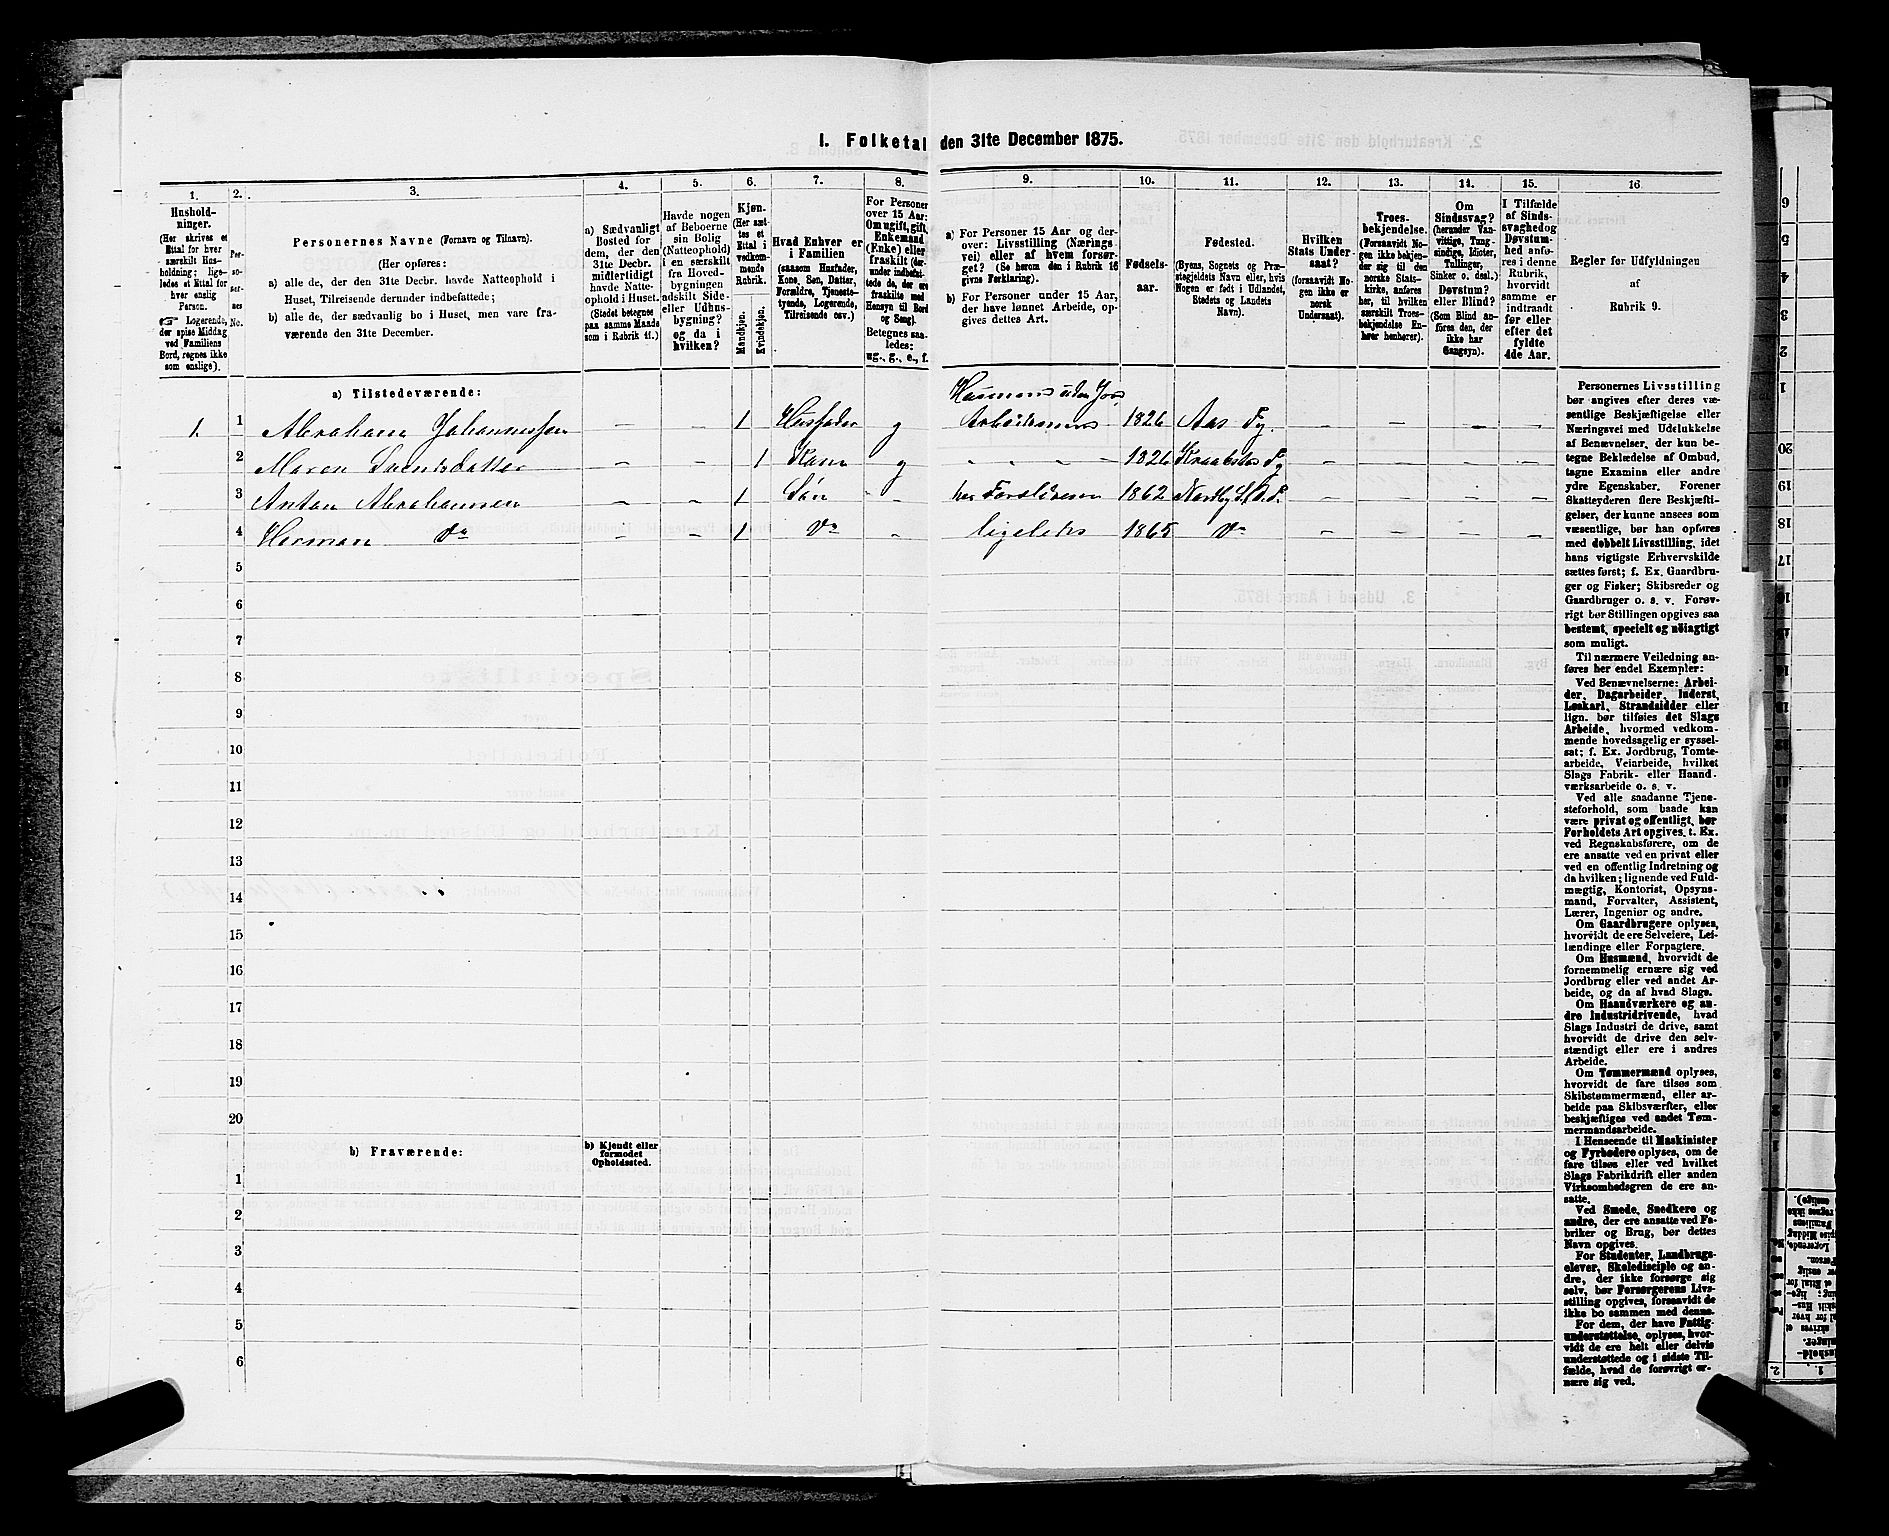 1. Folketal den 31te December 1875.
1. 2. 3. 4. 5. 6. 7. 8. 9. 10. 11. 12. 13. 14. 15. 16
Hushold-
ninger.
(Her skrives et
Ettal for hver
særskilt Hus-
holdning; lige-
ledes et Ettal for
hver enslig
Person.
☞ Logerende,
der spise Middag
ved Familiens
Bord, regnes ikke
som enslige).
Per-
so-
ner-
nes
No.
Personernes Navne (Fornavn og Tilnavn).
(Her opføres:
a) alle de, der den 31te Decbr. havde Natteophold i
Huset, Tilreisende derunder indbefattede;
b) alle de, der sædvanlig bo i Huset, men vare fra-
værende den 31te December.
a) Sædvanligt
Bosted for
dem, der den
31te Decbr.
midlertidigt
havde Natte-
ophold i Huset.
(Stedet betegnes
paa samme Maade
som i Rubrik 11.)
Havde nogen
af Beboerne
sin Bolig
(Natteophold)
i en særskilt
fra Hoved-
bygningen
adskilt Side-
eller Udhus-
bygning?
og da i
hvilken?
Kjøn.
(Her sæt-
tes et
Ettal i
vedkom-
mende
Rubrik.
Mandkjøn.
Kvindekjøn.
Hvad Enhver er
i Familien
(saasom Husfader,
Kone, Søn, Datter,
Forældre, Tjeneste-
tyende, Logerende,
Tilreisende osv.)
For Personer
over 15 Aar:
Om ugift, gift,
Enkemand
(Enke) eller
fraskilt (der-
under indbefat-
tede de, der ere
fraskilte med
Hensyn til Bord
og Seng).
Betegnes saa-
ledes:
ug., g., e., f.
a) For Personer 15 Aar og der-
over: Livsstilling (Nærings-
vei) eller af hvem forsør-
get? (Se herom den i Rubrik 16
givne Forklaring).
b) For Personer under 15 Aar,
der have lønnet Arbeide, op-
gives dettes Art.
Fødsels-
aar.
Fødested.
(Byens, Sognets og Præ-
stegjeldets Navn eller, hvis
Nogen er født i Udlandet,
Stedets og Landets
Navn).
Hvilken
Stats Under-
saat?
(forsaavidt No-
gen ikke er
norsk
Undersaat).
Troes-
bekjendelse.
(Forsaavidt No-
gen ikke bekjen-
der sig til den
norske Stats-
kirke, anføres
her, til hvilken
særskilt Troes-
bekjendelse En-
hver henhører).
Om
Sindssvag?
(herunder Van-
vittige, Tung-
sindige, Idioter,
Tullinger,
Sinker o. desl.)
Døvstum?
eller Blind?
(Som Blind an-
føres den, der
ikke har
Gangsyn).
I Tilfælde
af Sinds-
svaghed og
Døvstum-
hed anfø-
res i denne
Rubrik,
hvorvidt
samme er
indtraadt
før eller
efter det
fyldte
4de Aar.
Regler for Udfyldningen
af
Rubrik 9.
a) Tilstedeværende:
Husmand uden Jord,
1. 1 Abraham Johannessen – – 1 Husfader g 1826 Aas Pg. – – – –
2 Maren Svendsdatter – – 1 Kone g - - - - 1826 Kraakstad Pg – – – –
3 Anton Abrahamsen – – 1 Søn – 1862 Nordby S. – – – –
4 Herman do – – 1 do – ligeledes 1865 do – – – –
5
6
7
8
9
10
11
12
13
14
15
16
17
18
19
20
b) Fraværende:
b) Kjendt eller
formodet
Opholdssted.
1
2
3
4
5
6
Personernes Livsstilling
bør angives efter deres væ-
sentlige Beskjæftigelse eller
Næringsvei med Udelukkelse
af Benævnelser, der kun be-
tegne Beklædelse af Ombud,
tagne Examina eller andre
ydre Egenskaber. Forener
Skatteyderen flere Beskjæfti-
gelser, der kunne ansees som
væsentlige, bør han opføres
med dobbelt Livsstilling, idet
hans vigtigste Erhvervskilde
sættes først; f. Ex. Gaardbru-
ger og Fisker; Skibsreder og
Gaardbruger o. s. v. Forøv-
rigt bør Stillingen opgives saa
bestemt, specielt og nøiagtigt
som muligt.
Til nærmere Veiledning an-
føres her endel Exempler:
Ved Benævnelserne: Arbei-
der, Dagarbeider, Inderst,
Løskarl, Strandsidder eller
lign. bør tilføies det Slags
Arbeide, hvormed vedkom-
mende hovedsagelig er syssel-
sat; f. Ex. Jordbrug, Tomte-
arbeide, Veiarbeide, hvilket
Slags Fabrik- eller Haand-
værksarbeide o. s. v.
Ved alle saadanne Tjene-
steforhold, som baade kan
være privat og offentligt, bør
Forholdets Art opgives, t. Ex.
ved Regnskabsførere, om de
ere ansatte ved en privat eller
ved en offentlig Indretning og
da hvilken; lignende ved Fuld-
mægtig, Kontorist, Opsyns-
mand, Forvalter, Assistent,
Lærer, Ingeniør og andre.
Om Gaardbrugere oplyses,
hvorvidt de ere Selveiere, Lei-
lændinge eller Forpagtere.
Om Husmænd, hvorvidt de
fornemmelig ernære sig ved
Jordbrug eller ved andet Ar-
beide, og da af hvad Slags.
Om Haandværkere og an-
dre Industridrivende, hvad
Slags Industri de drive, samt
hvorvidt de drive den selv-
stændigt eller ere i andres
Arbeide.
Om Tømmermænd oplyses,
hvorvidt de fare tilsøs som
Skibstømmermænd, eller ar-
beide paa Skibsværfter, eller
beskjæftiges ved andet Tøm-
mermandsarbeide.
I Henseende til Maskinister
og Fyrbødere oplyses, om de
fare tilsøs eller ved hvilket
Slags Fabrikdrift eller anden
Virksomhedsgren de ere an-
satte.
Ved Smede, Snedkere og
andre, der ere ansatte ved Fa-
briker og Brug, bør dettes
Navn opgives.
For Studenter, Landbrugs-
elever, Skoledisciple og an-
dre, der ikke forsørge sig
selv, bør Forsørgerens Livs-
stilling opgives, forsaavidt de
ikke bo sammen med denne.
For dem, der have Fattig-
understøttelse, oplyses, hvor-
vidt de ere helt eller delvis
understøttede og i sidste Til-
fælde, hvad de forøvrigt er-
nære sig ved.